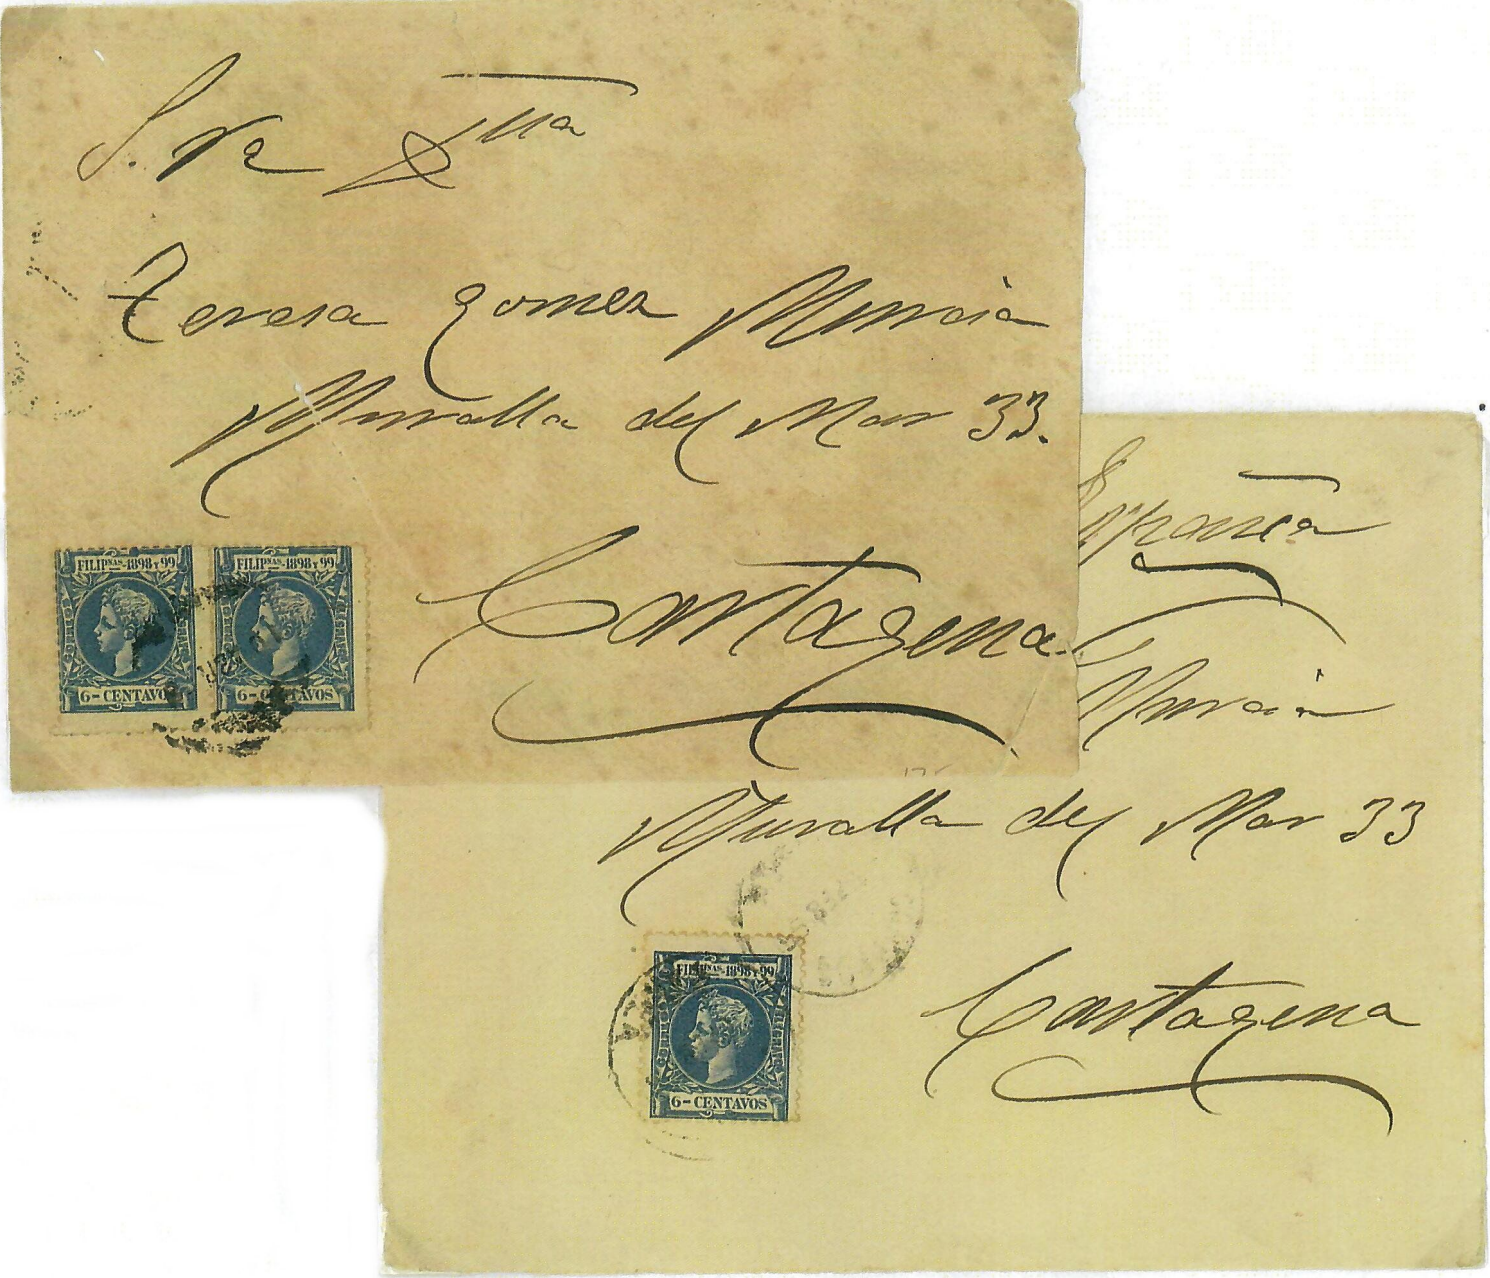 S. ra D.ña
Teresa Gomez Murcia
Muralla del Mar 33.
Cartagena
FILIPNAS-1898 Y 99
6-CENTAVOS
FILIPNAS-1898 Y 99
6-CENTAVOS
España
Murcia
Muralla del Mar 33
Cartagena
FILIPNAS-1898 Y 99
6-CENTAVOS